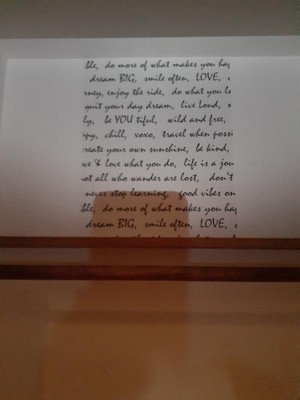 ble, do more of what makes you hap
dream BIG, smile often, LOVE,
rney, enjoy the ride, do what you lo
quit your day dream, live Loud,
ly, be YOU tiful, wild and free,
ppy, chill, xoxo, travel when possi
create your own sunshine, be kind,
we & love what you do, life is a jou
not all who wander are lost, don't
never stop learning, good vibes on
ble, do more of what makes you hap
dream BIG, smile often, LOVE,